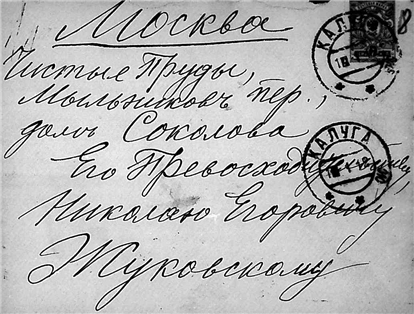 Москва
Чистые Пруды,
Мыльниковъ пер.,
домъ Соколова
Его Превосходительству
Николаю Егоровичу
Жуковскому
КАЛУГА
КАЛУГА